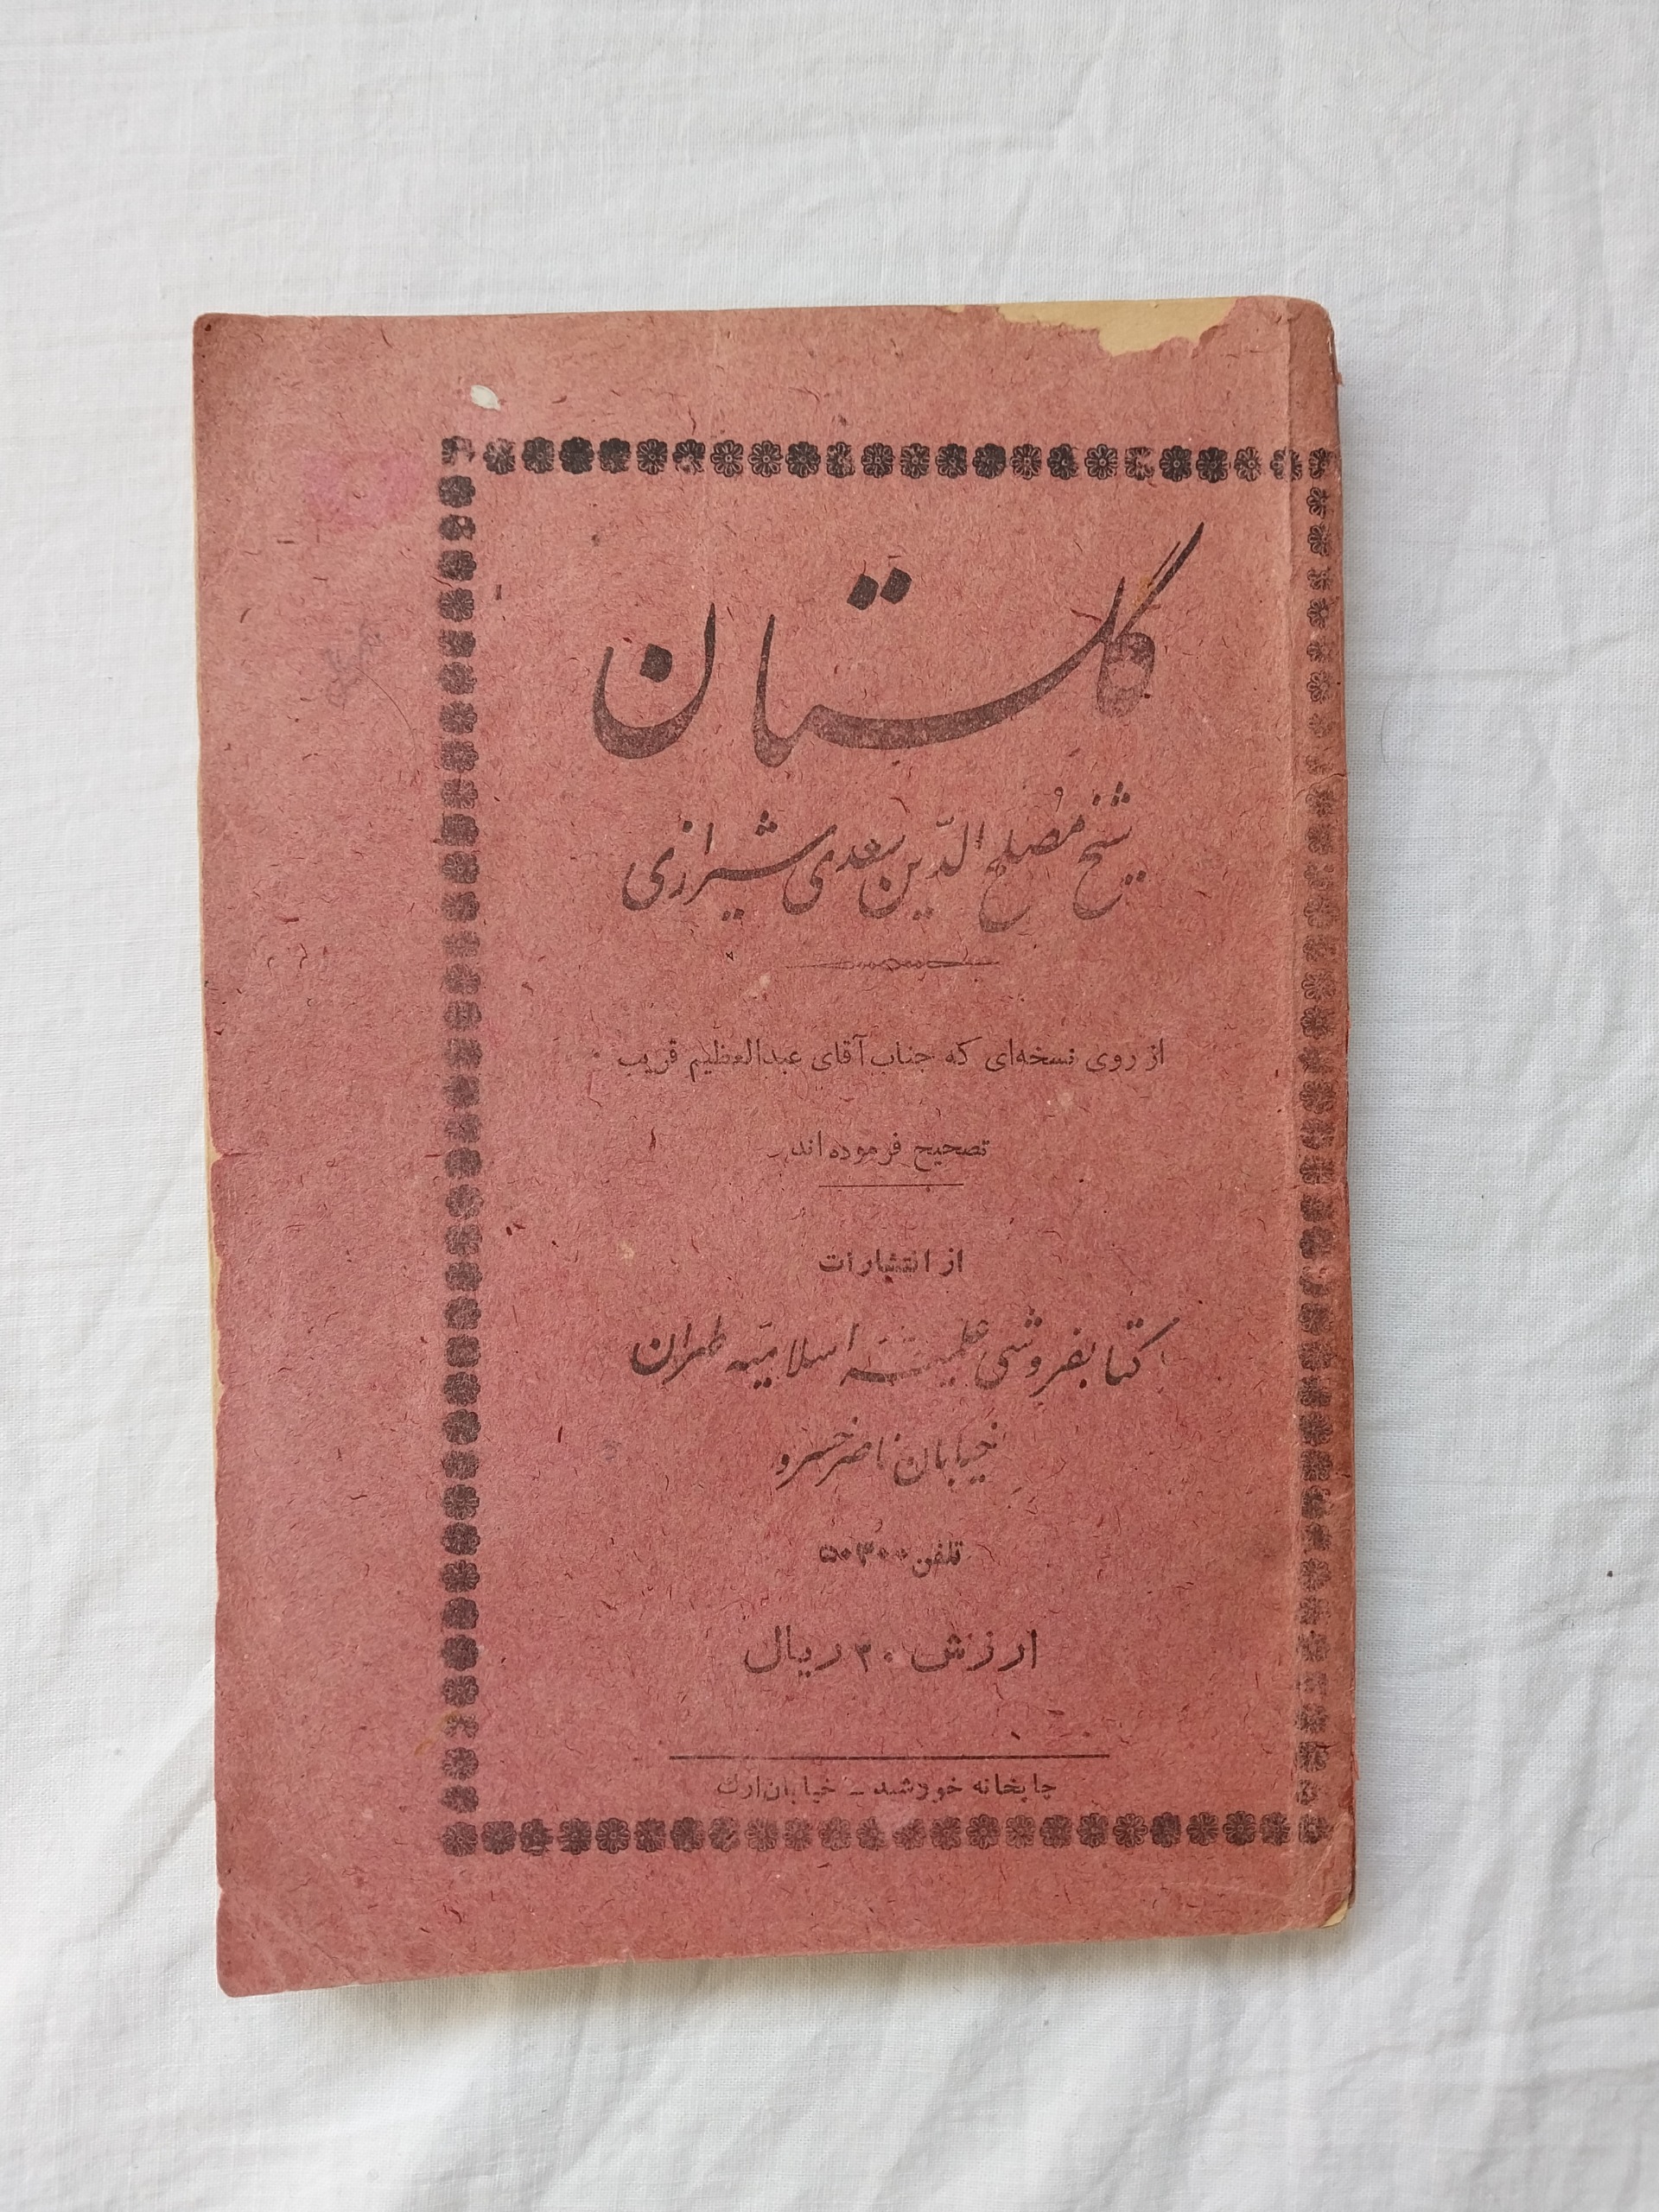 گلستان
شیخ مُصلح الدّین سعدی شیرازی
از روی نسخه‌ای که جناب آقای عبدالعظیم قریب
تصحیح فرموده‌اند
از انتشارات
کتابفروشی علمیّه اسلامیّه طهران
خیابان ناصرخسرو
تلفن ۵۰۳۰۰
ارزش ۲۰ ریال
چاپخانه خورشید – خیابان ارک